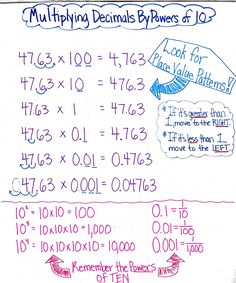 Multiplying Decimals By Powers of 10
47.63 x 100 = 4,763
47.63 x 10 = 476.3
47.63 x 1 = 47.63
47.63 x 0.1 = 4.763
47.63 x 0.01 = 0.4763
47.63 x 0.001 = 0.04763
Look for
Place Value Patterns!!
* If it's greater than
1, move to the RIGHT.
* If it's less than 1,
move to the LEFT.
10² = 10x10 = 100
10³ = 10x10x10 = 1,000
10⁴ = 10x10x10x10 = 10,000
0.1 = 1/10
0.01 = 1/100
0.001 = 1/1,000
Remember the Powers
of TEN